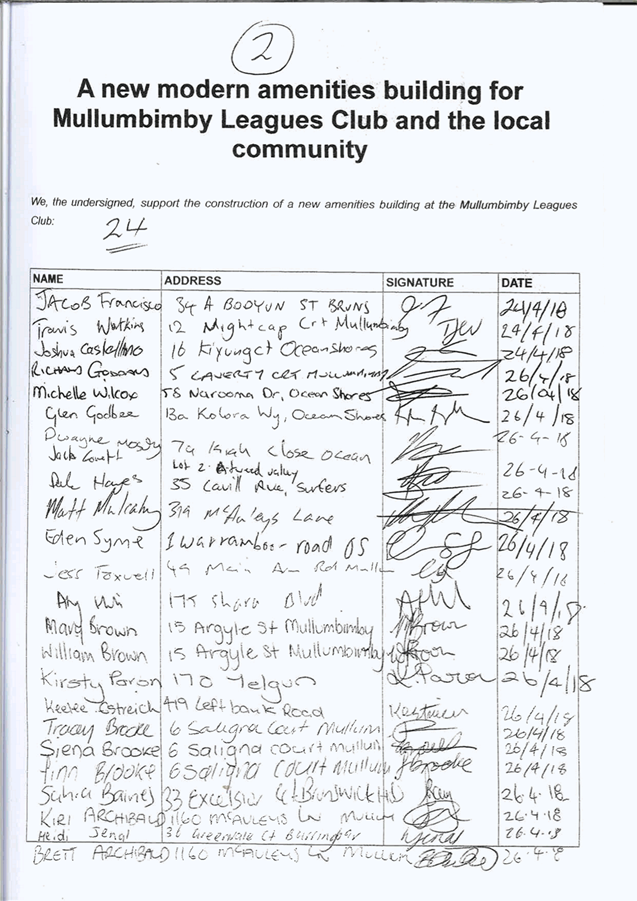 2
A new modern amenities building for
Mullumbimby Leagues Club and the local
community
We, the undersigned, support the construction of a new amenities building at the Mullumbimby Leagues
Club: 24
NAME ADDRESS SIGNATURE DATE
JACOB Francisco 34 A BOOYUN ST BRUNS 24/4/18
Travis Watkins 12 Nightcap Crt Mullumbimby 24/4/18
Joshua 16 Kiyung ct Ocean shores 24/4/18
5 LAVERTY CRT MULLUMBIMBY 26/4/18
Michelle Wilcox 58 Narooma Dr, Ocean Shores 26/04/18
Glen Godbee 13a Kolora Wy, Ocean Shores 26/4/18
Dwayne 7a High Close Ocean 26-4-18
Jack Lot 2 valley 26-4-18
Dale Hayes 35 Cavill Ave, surfers 26-4-18
Matt Lane 26/4/18
Eden Syme 1 warramboo road OS 26/4/18
Jess Main Arm Rd Mullum 26/4/18
175 Blvd
Mary Brown 15 Argyle St Mullumbimby MBrown 26/4/18
William Brown 15 Argyle St Mullumbimby 26/4/18
Kirsty 170 Yelgun 26/4/18
Oestreich 419 Left bank Road 26/4/18
Tracey Brooke 6 Saligna Court Mullum 26/4/18
Siena Brooke 6 Saligna court mullum 26/4/18
Finn Brooke 6 Saligna Court Mullum 26/4/18
Baines 33 Excelsior 26.4.18
KIRI ARCHIBALD 1160 MCAULEYS LN MULLUM 26.4.18
Heidi 26.4.18
BRETT ARCHIBALD 1160 MCAULEYS LN MULLUM 26.4.8